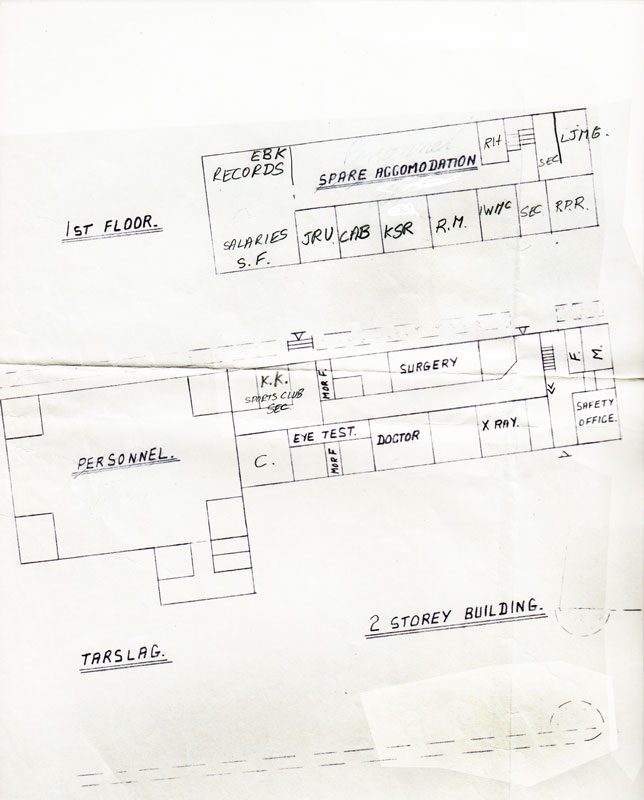 EBK
RECORDS
SPARE ACCOMODATION
RH
SEC
LJMG.
1ST FLOOR.
SALARIES
S.F.
JRU.
CAB
KSR
R.M.
IWMC
SEC
R.P.R.
K.K.
SPORTS CLUB
SEC
M OR F.
SURGERY
F.
M.
EYE TEST.
DOCTOR
X RAY.
SAFETY
OFFICE.
PERSONNEL.
C.
M OR F
2 STOREY BUILDING.
TARSLAG.